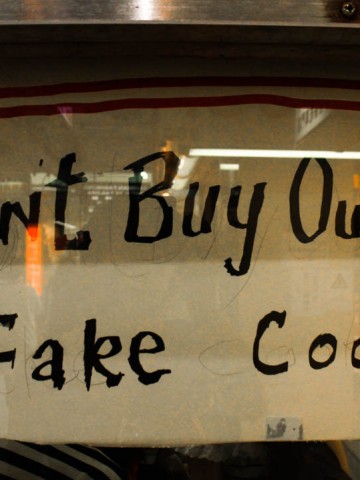 n't Buy Ou
Fake Coo